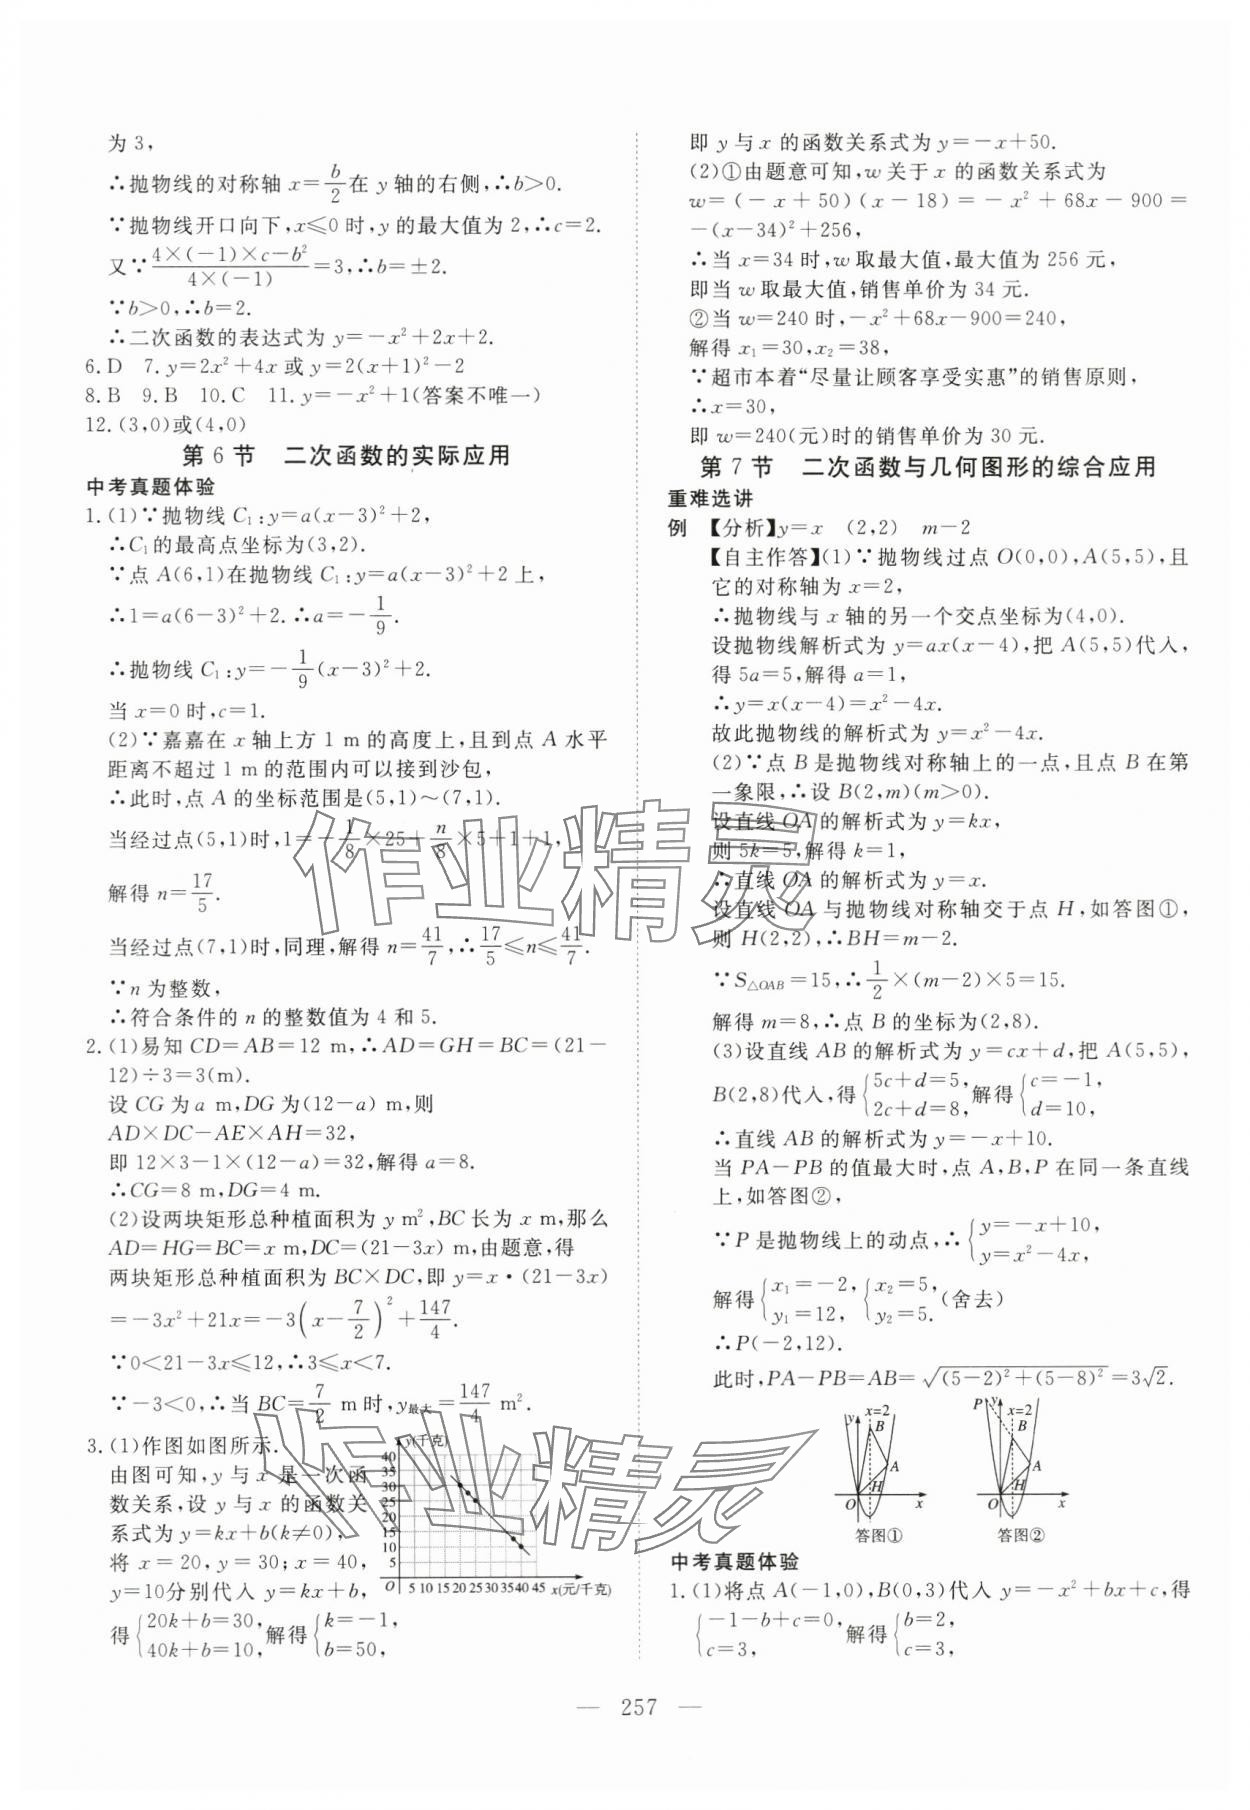 为 3,
∴抛物线的对称轴 x=b/2在 y 轴的右侧,∴b>0.
∵抛物线开口向下,x⩽0 时,y 的最大值为 2,∴c=2.
又∵(4×(-1)×c-b²)/(4×(-1))=3,∴b=±2.
∵b>0,∴b=2.
∴二次函数的表达式为 y=-x²+2x+2.
6.D 7.y=2x²+4x 或 y=2(x+1)²-2
8.B 9.B 10.C 11.y=-x²+1(答案不唯一)
12.(3,0)或(4,0)
第 6 节 二次函数的实际应用
中考真题体验
1.(1)∵抛物线 C₁:y=a(x-3)²+2,
∴C₁的最高点坐标为(3,2).
∵点 A(6,1)在抛物线 C₁:y=a(x-3)²+2 上,
∴1=a(6-3)²+2.∴a=-1/9.
∴抛物线 C₁:y=-1/9(x-3)²+2.
当 x=0 时,c=1.
(2)∵嘉嘉在 x 轴上方 1 m 的高度上,且到点 A 水平
距离不超过 1 m 的范围内可以接到沙包,
∴此时,点 A 的坐标范围是(5,1)~(7,1).
当经过点(5,1)时,1=-1/8×25+n/8×5+1+1,
解得 n=17/5.
当经过点(7,1)时,同理,解得 n=41/7,∴17/5⩽n⩽41/7.
∵n 为整数,
∴符合条件的 n 的整数值为 4 和 5.
2.(1)易知 CD=AB=12 m,∴AD=GH=BC=(21-
12)÷3=3(m).
设 CG 为 a m,DG 为(12-a) m,则
AD×DC-AE×AH=32,
即 12×3-1×(12-a)=32,解得 a=8.
∴CG=8 m,DG=4 m.
(2)设两块矩形总种植面积为 y m²,BC 长为 x m,那么
AD=HG=BC=x m,DC=(21-3x) m,由题意,得
两块矩形总种植面积为 BC×DC,即 y=x·(21-3x)
=-3x²+21x=-3(x-7/2)²+147/4.
∵0<21-3x⩽12,∴3⩽x<7.
∵-3<0,∴当 BC=7/2 m 时,y最大=147/4 m².
3.(1)作图如图所示.
由图可知,y 与 x 是一次函
数关系,设 y 与 x 的函数关
系式为 y=kx+b(k≠0),
将 x=20,y=30;x=40,
y=10分别代入 y=kx+b,
得{20k+b=30, 40k+b=10, 解得{k=-1, b=50,
y(千克)
40
35
30
25
20
15
10
5
O 5 10 15 20 25 30 35 40 45 x(元/千克)
即 y 与 x 的函数关系式为 y=-x+50.
(2)①由题意可知,w 关于 x 的函数关系式为
w=(-x+50)(x-18)=-x²+68x-900=
-(x-34)²+256,
∴当 x=34 时,w 取最大值,最大值为 256 元,
即当 w 取最大值,销售单价为 34 元.
②当 w=240 时,-x²+68x-900=240,
解得 x₁=30,x₂=38,
∵超市本着“尽量让顾客享受实惠”的销售原则,
∴x=30,
即 w=240(元)时的销售单价为 30 元.
第 7 节 二次函数与几何图形的综合应用
重难选讲
例 【分析】y=x (2,2) m-2
【自主作答】(1)∵抛物线过点 O(0,0),A(5,5),且
它的对称轴为 x=2,
∴抛物线与 x 轴的另一个交点坐标为(4,0).
设抛物线解析式为 y=ax(x-4),把 A(5,5)代入,
得 5a=5,解得 a=1,
∴y=x(x-4)=x²-4x.
故此抛物线的解析式为 y=x²-4x.
(2)∵点 B 是抛物线对称轴上的一点,且点 B 在第
一象限,∴设 B(2,m)(m>0).
设直线 OA 的解析式为 y=kx,
则 5k=5,解得 k=1,
∴直线 OA 的解析式为 y=x.
设直线 OA 与抛物线对称轴交于点 H,如答图①,
则 H(2,2),∴BH=m-2.
∵S△OAB=15,∴1/2×(m-2)×5=15.
解得 m=8,∴点 B 的坐标为(2,8).
(3)设直线 AB 的解析式为 y=cx+d,把 A(5,5),
B(2,8)代入,得{5c+d=5, 2c+d=8, 解得{c=-1, d=10,
∴直线 AB 的解析式为 y=-x+10.
当 PA-PB 的值最大时,点 A,B,P 在同一条直线
上,如答图②,
∵P 是抛物线上的动点,∴{y=-x+10, y=x²-4x,
解得{x₁=-2, y₁=12, {x₂=5, y₂=5.(舍去)
∴P(-2,12).
此时,PA-PB=AB=√((5-2)²+(5-8)²)=3√2.
y x=2 B A H O x
答图①
P y x=2 B A H O x
答图②
中考真题体验
1.(1)将点 A(-1,0),B(0,3)代入 y=-x²+bx+c,得
{-1-b+c=0, c=3, 解得{b=2, c=3,
— 257 —
作业精灵
作业精灵